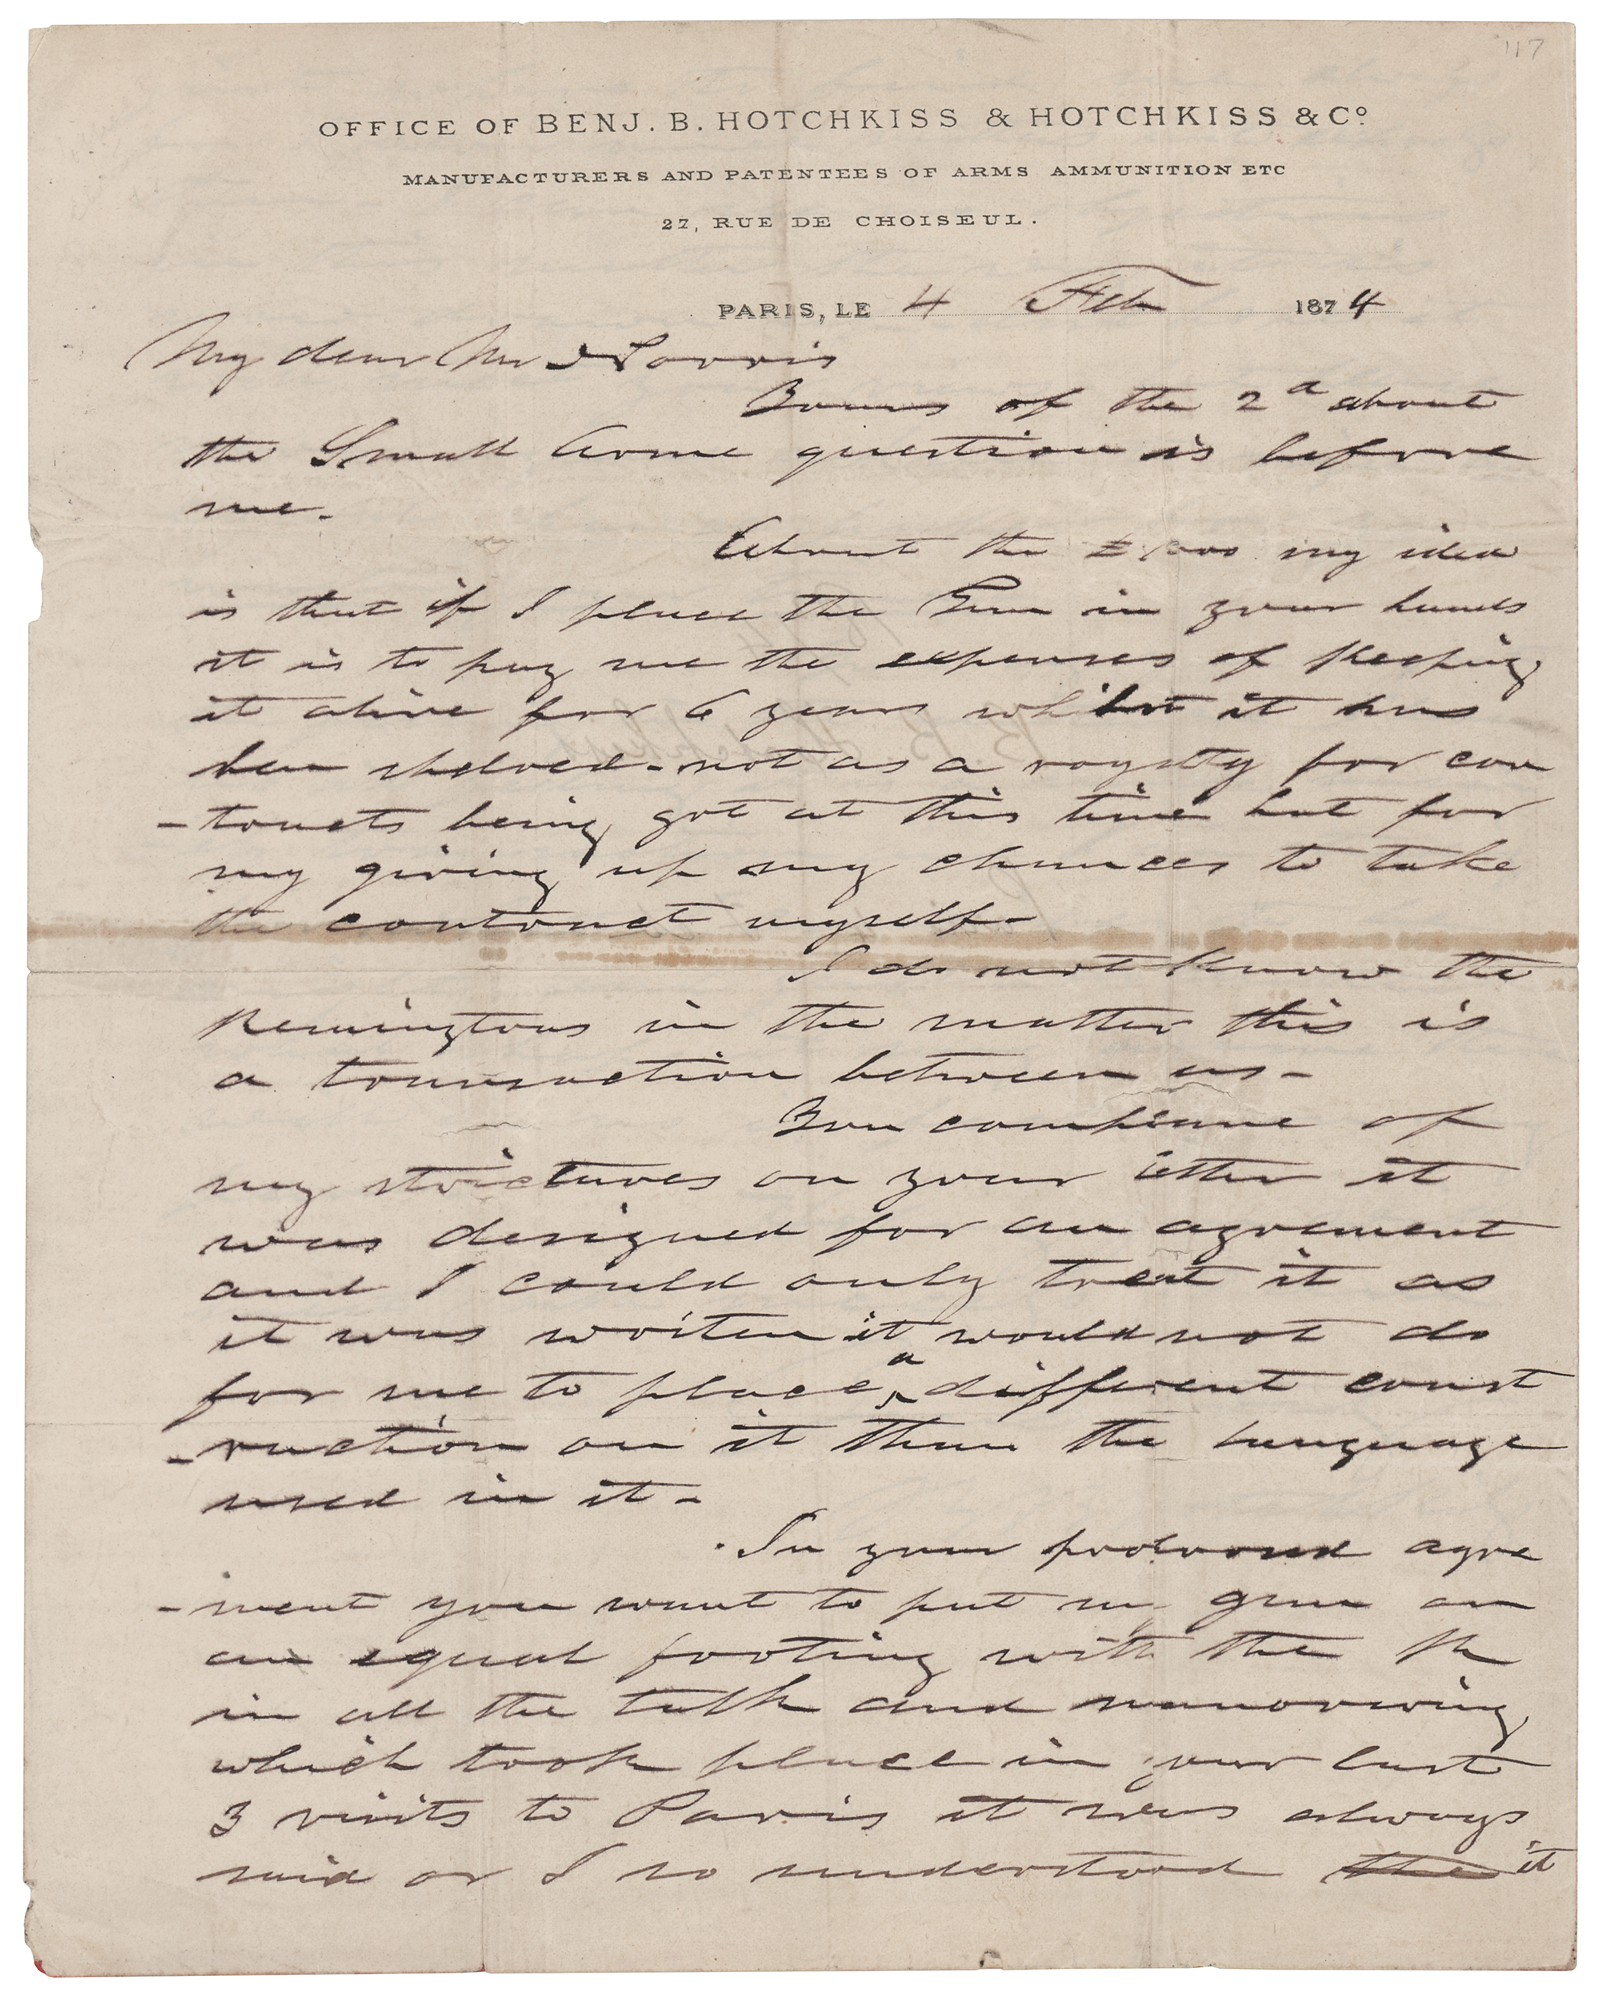 117
OFFICE OF BENJ. B. HOTCHKISS & HOTCHKISS & Cº
MANUFACTURERS AND PATENTEES OF ARMS AMMUNITION ETC
27, RUE DE CHOISEUL.
PARIS, LE 4 Feb 1874
My dear Mr Norris
Yours of the 2d about
the Small Arms question is before
me.
About the my idea
is that if I place the Gun in your hands
it is to pay me the expenses of keeping
it alive for 6 years whilst it has
been shelved - not as a royalty for con
-tracts being got at this time but for
my giving up my chances to take
the contract myself-
I do not know the
Remingtons in the matter this is
a transaction between us-
You complane of
my strictures on your letter it
was designed for an agrement
and I could only treat it as
it was writen it would not do
for me to place a different const
-ruction on it than the language
used in it-
In your proposed agre
-ment you want to put my gun on
an equal footing with the R
in all the talk and manovering
which took place in your last
3 visits to Paris it was always
said or I so understood the it